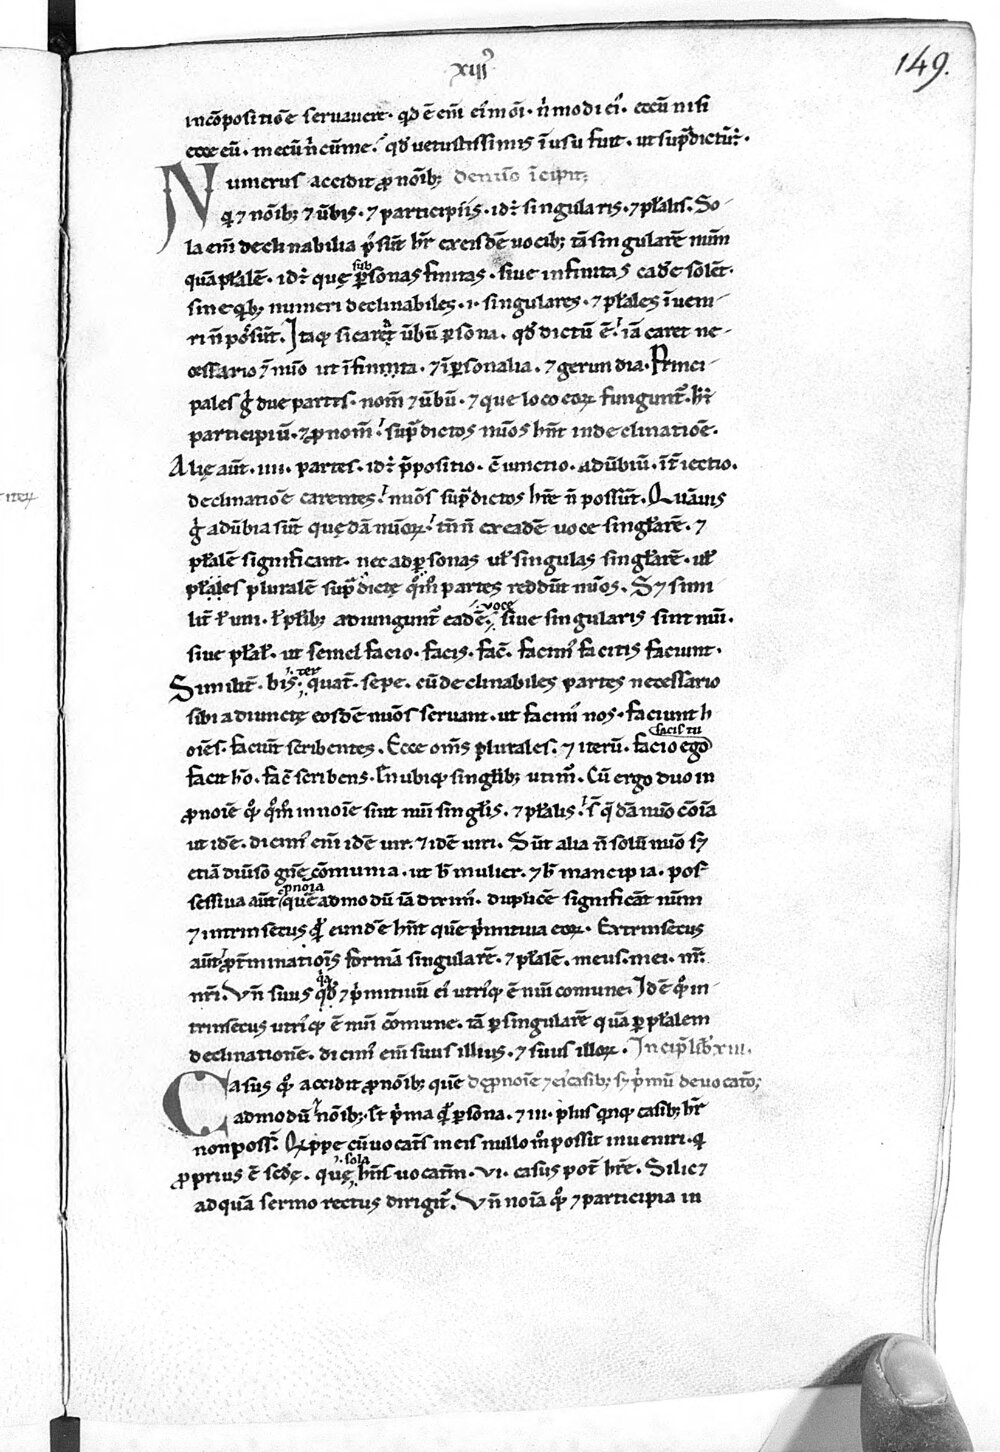 149.
xiii
incōpositiōe servaverit. qd̄ ē em̄ ei' mōi. n̄ modi ei'. eccū nisi
ecce eū. mecū n̄ cūme. qd̄ vetustissimis ī usu fuit. ut sup̄dictū÷.
Numerus accidit ꝓnōīb; De nūo īcipit;
q̇ ⁊ nōīb; ⁊ ūbis. ⁊ participiis. id÷ singularis. ⁊ pƚalis. So-
la em̄ declinabilia p̄'sūt hr̄e ex eisdē vocib; tā singularē num̄
quā pƚalē. id÷ quę sub ꝑsonas finitas. sive infinitas cadē solēt.
sine qb; numeri declinabiles. i. singulares. ⁊ pƚales īveni-
ri n̄ pos̄'sūt. Itaq; si caret ūbū ꝑsona. qd̄ dictū ē. iā caret ne-
cessario ⁊ nūo ut īfinita. ⁊ īꝑsonalia. ⁊ gerundia. Princi-
pales ġ due partes. nom̄ ⁊ ūbū. ⁊ que loco eoꝝ fungunt̄. h÷
participiū. ⁊ ꝓnom̄. sup̄dictos nūos hn̄t in declinatiōe.
Alię aūt. iiii. partes. id÷ p̄positio. c̄iunctio. adūbiū. īt̄iectio.
declinatiōe carentes. nūos sup̄dictos hr̄e n̄ possūt. Quāvis
ġ adūbia sūt quędā nūoꝝ. tn̄ n̄ ex eadē voce singƚarē. ⁊
pƚalē significant. nec ad ꝑsonas uƚ singulas singƚarē. uƚ
pƚales pluralē sup̄dictę qm̄ partes reddūt nūos. S⁊ simi
lit̄ ƚ uni. ƚ pƚib; adiungunt̄ eadē voce sive singularis sint nūi.
sive pƚał. ut semel facio. facis. fac̄. facim' facitis faciunt.
Similit̄. bis. ter quat̄. sepe. cū declinabiles partes necessario
sibi adiunctę eosdē nūos servant. ut facim' nos. faciunt h
oīēs. faciūt scribentes. Ecce om̄s plurales. ⁊ iterū. facio ego facis tu
facit hō. fac̄ scribens. En ubiq; singƚib; utim'. Cū ergo duo in
ꝓnoīe qꝫ qm̄ in noīe siut nūi singƚis. ⁊ pƚalis. st̄ q̇dā nūo cōīa
ut idē. dicim' em̄ idē vir. ⁊ idē viri. Sūt alia n̄ solū nūo s⁊
etiā divīso gn̄e cōmunia. ut h̄ mulier. ⁊ h̄ mancipia. pos-
sessiva aūt ꝓnoīa quēadmodū iā dixim'. duplicē significāt nūm
⁊ intrinsecus q̇ƚ eundē hn̄t quē p̄mitiva eoꝝ. Extrinsecus
aūt ꝓ t̄minatiōis formā singularē. ⁊ pƚalē. meus. mei. nr̄.
nr̄i. Vn̄ suus qa qd̄ ⁊ p̄mitivū ei' utriq; ē nūi comune. Idē qꝫ in-
trinsecus utriq; ē nūi cōmune. tā ꝑ singularē quā ꝑ pƚalem
declinationē. dicim' em̄ suus illius. ⁊ suus illoꝝ. Incip̄ lib̄ xiii.
Casus qꝫ accidit ꝓnoīb; quē de ꝓnoīe ⁊ ei' casib; s⁊ p̄mū de vocatō;
admodū ⁊ nōīb;. st̄ p̄ma q̇ƚ ꝑsona. ⁊ iii. plus qnq; casib; hr̄e
non poss̄. Qppe cū vocat̄s in eis nullo m̊ possit inveniri. q̇
ꝓprius ē scd̄ę. quę sola hn̄s vocatīm. vi. casus pot̄ hr̄e. Silic⁊
ad quā sermo rectus dirigit̄. Vn̄ noīa qꝫ ⁊ participia in